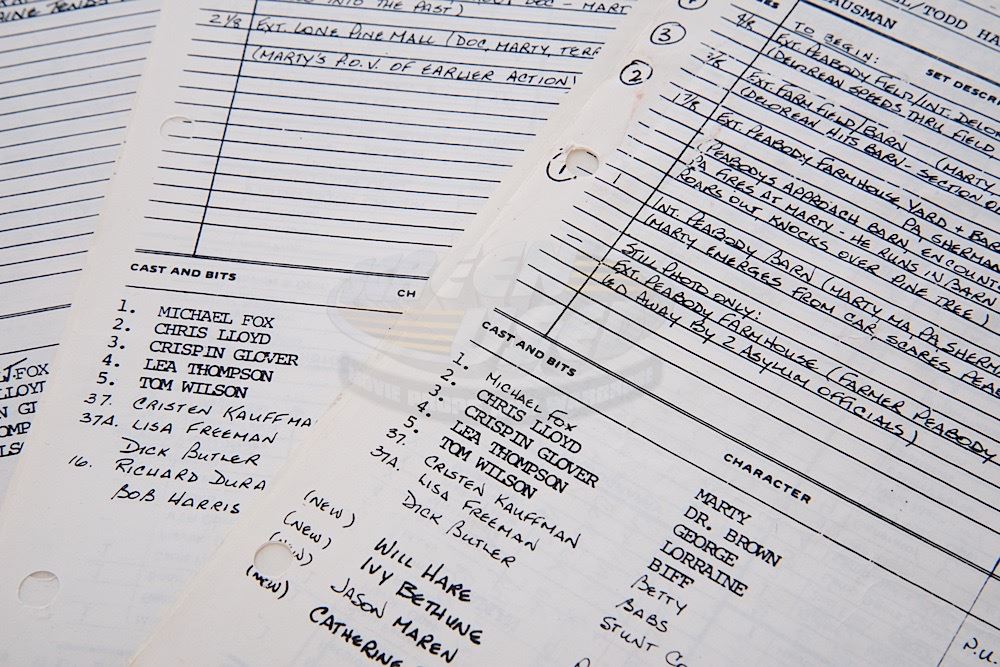 INTO THE PAST)
DEC - MART
2 1/8 EXT. LONE PINE MALL (DOC, MARTY, TERR
(MARTY'S P.O.V. OF EARLIER ACTION)
CAST AND BITS
CH
1. MICHAEL FOX
2. CHRIS LLOYD
3. CRISPIN GLOVER
4. LEA THOMPSON
5. TOM WILSON
37. CRISTEN KAUFFMA
37A. LISA FREEMAN
DICK BUTLER
16. RICHARD DURA
BOB HARRIS
J. FOX
LLOYD
N GL
OMP
ILS
/TODD HA
AUSMAN
SET DESCRI
TO BEGIN:
EXT. PEABODY FIELD/INT. DELO
(DELOREAN SPEEDS THRU FIELD,
EXT. FARM FIELD/BARN (MARTY,
(DELOREAN HITS BARN - SECTION OF
EXT. PEABODY FARMHOUSE YARD + BAR
(PEABODYS APPROACH BARN, ENCOUNT
PA FIRES AT MARTY - HE RUNS IN/BARN
ROARS OUT KNOCKS OVER PINE TREE)
INT. PEABODY BARN (MARTY MA, PA, SHERMA
(MARTY EMERGES FROM CAR, SCARES PEAB
STILL PHOTO ONLY:
EXT. PEABODY FARMHOUSE (FARMER PEABODY
LED AWAY BY 2 ASYLUM OFFICIALS)
3
2
1
CAST AND BITS
CHARACTER
1. MICHAEL FOX MARTY
2. CHRIS LLOYD DR. BROWN
3. CRISPIN GLOVER GEORGE
4. LEA THOMPSON LORRAINE
5. TOM WILSON BIFF
37. CRISTEN KAUFFMAN BETTY
37A. LISA FREEMAN BABS
DICK BUTLER STUNT CO
(NEW) WILL HARE
(NEW) IVY BETHUNE
JASON MAREN
(NEW) CATHERINE
P.U.